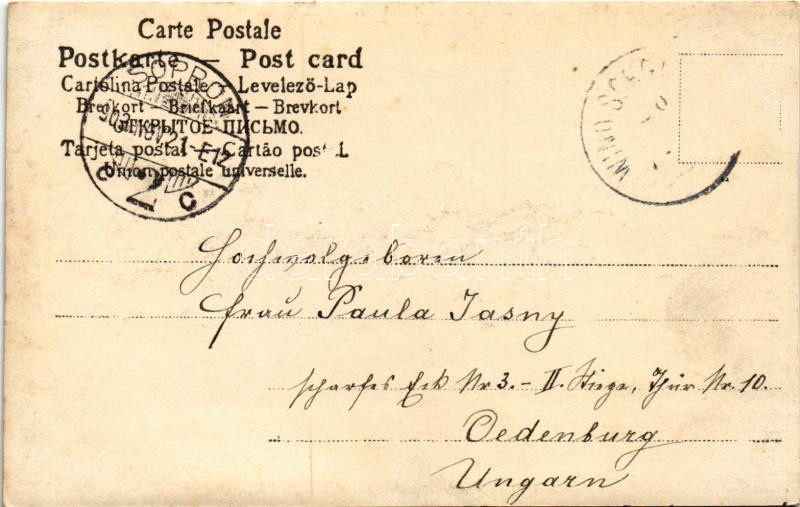 Carte Postale
Postkarte — Post card
Cartolina Postale — Levelező-Lap
Brefkort — Briefkaart — Brevkort
ОТКРЫТОЕ ПИСЬМО.
Tarjeta postal — Cartão postal.
Union postale universelle.
SOPRON
903 NOV 21 E12
C 2 C
Hochwolgeboren
Frau Paula Jasny
scharfes Eck Nr 3. - II. Stiege, Thür Nr. 10.
Oedenburg
Ungarn
darabanth